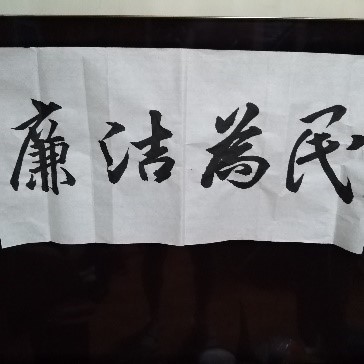 廉洁為民